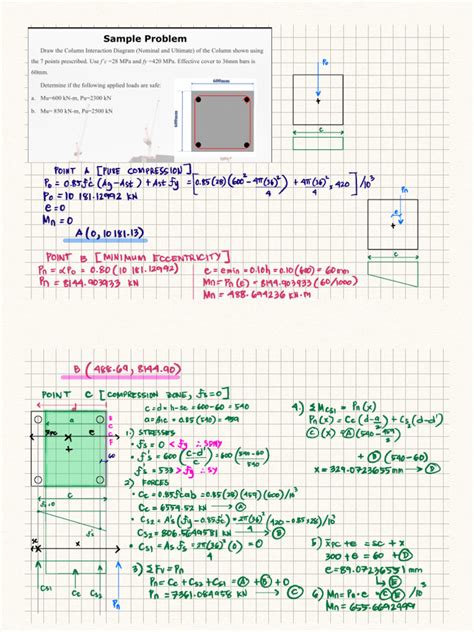 Sample Problem
Draw the Column Interaction Diagram (Nominal and Ultimate) of the Column shown using
the 7 points prescribed. Use f'c =28 MPa and fy =420 MPa. Effective cover to 36mm bars is
60mm.
Determine if the following applied loads are safe:
a. Mu=600 kN-m, Pu=2300 kN
b. Mu= 850 kN-m, Pu=2500 kN
600mm
600mm
Po
c
POINT A [PURE COMPRESSION]
Po = 0.85f'c (Ag-Ast) + Ast fy = [0.85(28)(600² - 4π(36)²/4) + 4π(36)²/4 · 420] /10³
Po = 10 181.12992 kN
e = 0
Mn = 0
A (0, 10 181.13)
Pn
e
c
POINT B [MINIMUM ECCENTRICITY]
Pn = αPo = 0.80 (10 181.12992)
Pn = 8144.903933 kN
e = emin = 0.10h = 0.10(600) = 60mm
Mn = Pn (e) = 8144.903933 (60/1000)
Mn = 488.694236 kN·m
B (488.69, 8144.90)
POINT C [COMPRESSION ZONE, fs=0]
d
a
c = d = h-sc = 600-60 = 540
a = β1c = 0.85(540) = 459
xpc
e
60
c
1.) STRESSES
fs = 0 < fy ∴ SDNY
f's = 600 (c-d'/c) = 600 (540-60/540)
f's = 533 > fy ∴ SY
2) FORCES
Cc = 0.85f'cab = 0.85(28)(459)(600)/10³
Cc = 6554.52 kN → A
Cs2 = A's (fy - 0.85f'c) = 2π(36)²/4 (420 - 0.85(28))/10³
Cs2 = 806.5649581 kN → B
Cs1 = As fs = 2π(36)²/4 (0) = 0
3) ΣFv = Pn
Pn = Cc + Cs2 + Cs1 = A + B + 0
Pn = 7361.084958 kN → C
fs=0
f's
x
x
Cs1
Cc
Cs2
Pn
4.) ΣMCs1 = Pn (x)
Pn(x) = Cc (d-a/2) + Cs2 (d-d')
C (x) = A (540-459/2)
+ B (540-60)
x = 329.0723655 mm → D
5) xpc + e = sc + x
300 + e = 60 + D
e = 89.07236551 mm
→ E
6) Mn = Pn·e = C E
Mn = 655.6692499